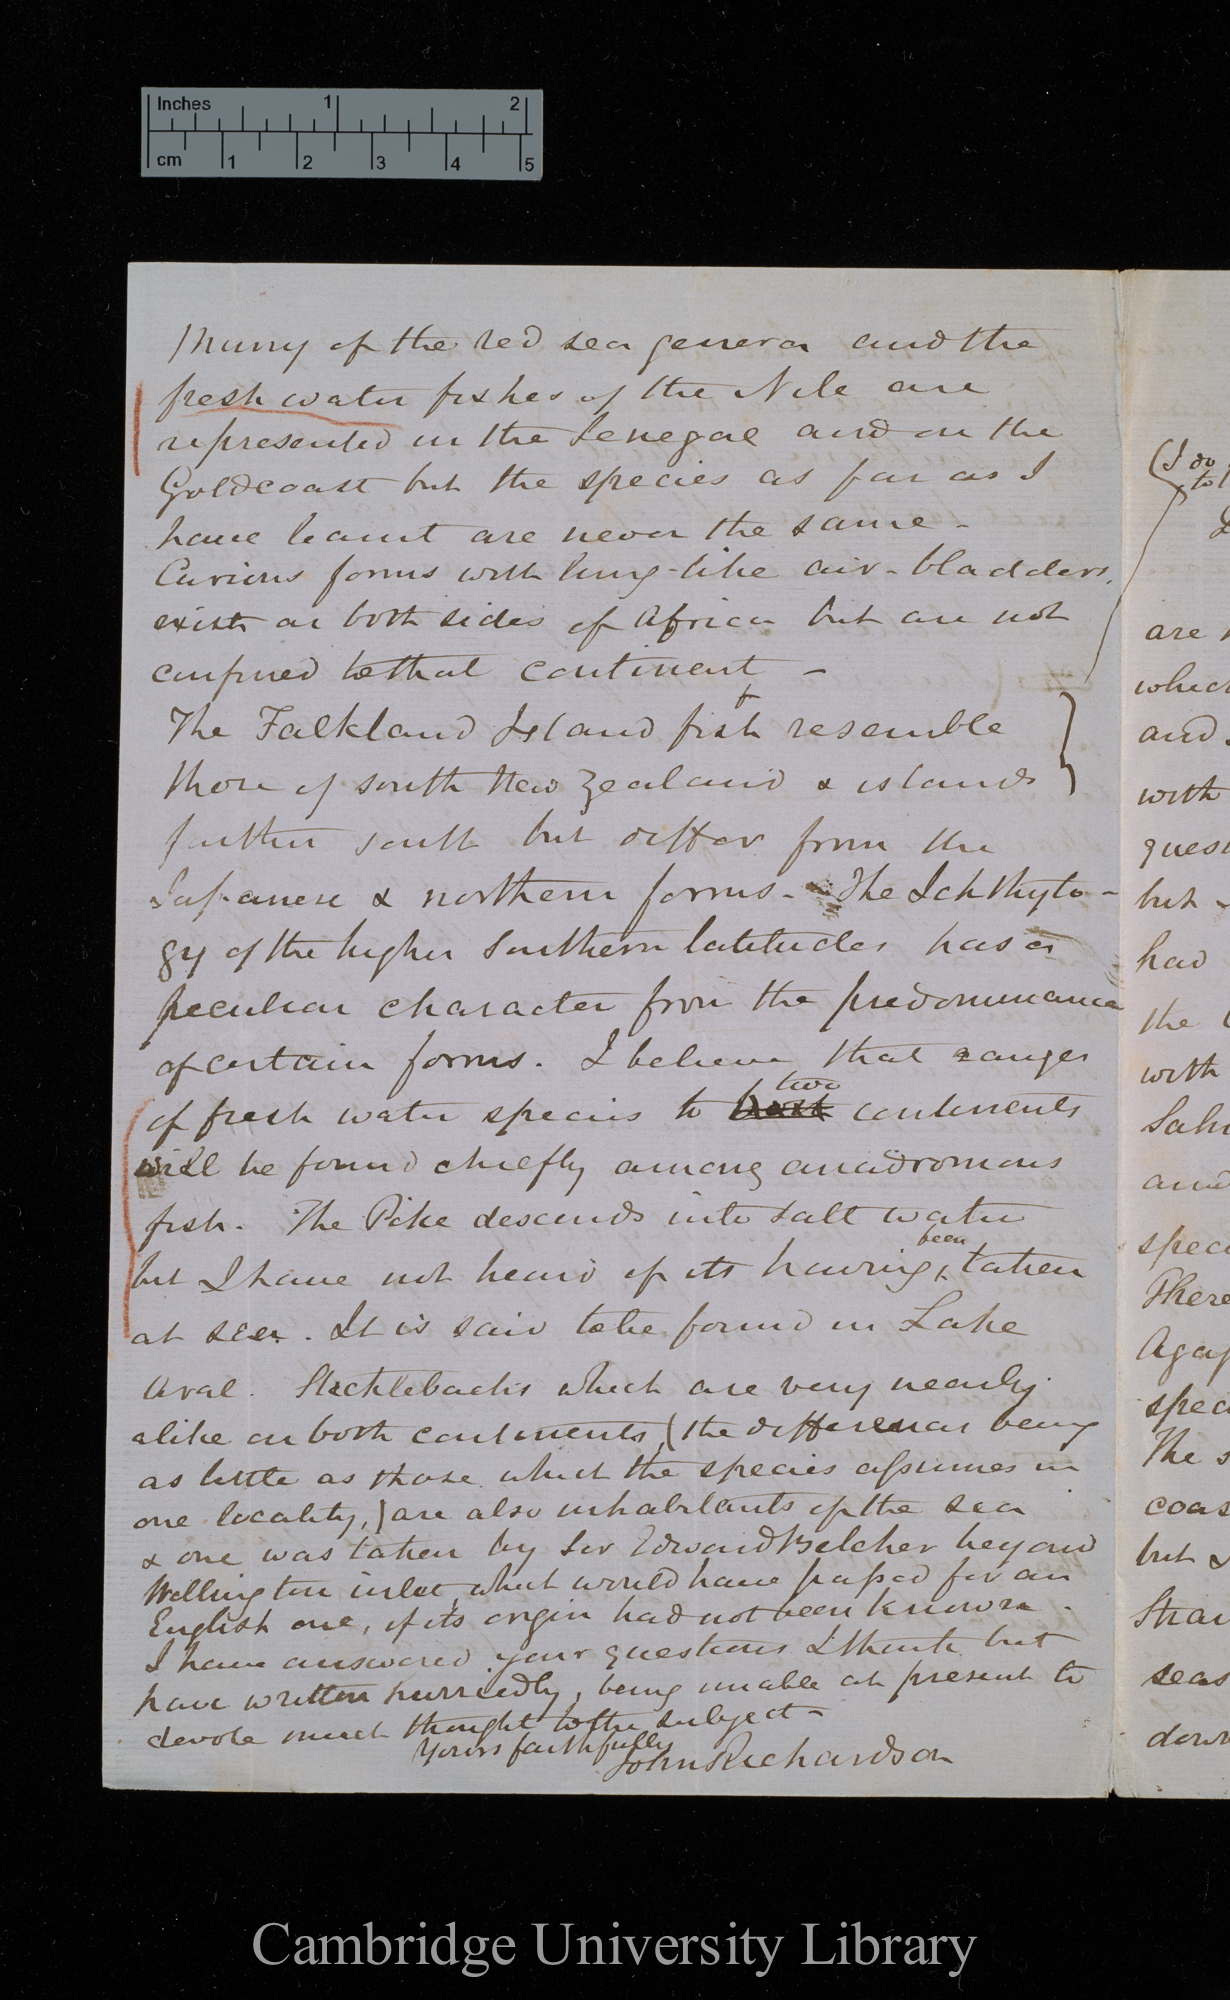 Inches 1 2
cm 1 2 3 4 5
Many of the red sea genera and the
fresh water fishes of the Nile are
represented in the Senegal and on the
Goldcoast but the species as far as I
have learnt are never the same -
Curious forms with lung-like air-bladders,
exists on both sides of Africa but are not
confined to that continent -
The Falkland Island fish resemble
those of south New Zealand & islands
farther south but differ from the
Japanese & northern forms - The Ichthyolo-
gy of the higher Southern latitudes has a
peculiar character from the predominance
of certain forms. I believe that ranges
two
of fresh water species to continents
will be found chiefly among anadromous
fish. The Pike descends into salt water
been
but I have not heard of its having taken
at sea. It is said to be found in Lake
Aral. Sticklebacks which are very nearly
alike on both continents, (the differences being
as little as those which the species assumes in
one locality,) are also inhabitants of the sea
& one was taken by Sir Edward Belcher beyond
Wellington inlet, which would have passed for an
English one, if its origin had not been known -
I have answered your questions I think but
have written hurriedly, being unable at present to
devote much thought to the subject -
Yours faithfully
John Richardson
(I do
to
are
which
and
with
quest
but
had
the
with
Salm
and
speci
There
Agap
spec
The s
coas
but &
Strai
seas
down
Cambridge University Library